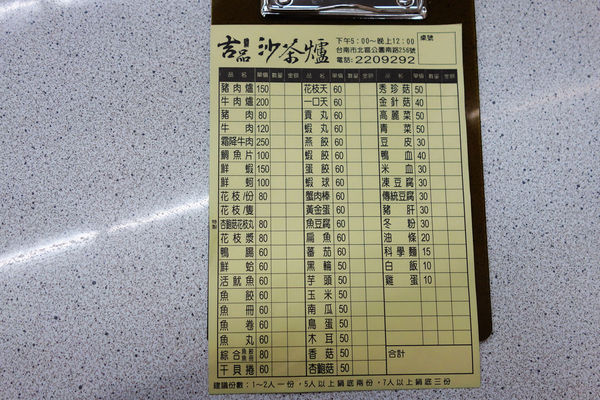 吉品沙茶爐
下午5:00～晚上12:00
台南市北區公園南路256號
電話:2209292
桌號
品名 單價 數量 金額 品名 單價 數量 金額 品名 單價 數量 金額
豬肉爐 150 花枝天 60 秀珍菇 50
牛肉爐 200 一口天 60 金針菇 40
豬肉 80 貢丸 60 高麗菜 50
牛肉 120 蝦丸 60 青菜 50
霜降牛肉 250 燕餃 60 豆皮 30
鯛魚片 100 蝦餃 60 鴨血 40
鮮蝦 150 蛋餃 60 米血 30
鮮蚵 100 蝦球 60 凍豆腐 30
花枝/份 80 蟹肉棒 60 傳統豆腐 30
花枝/隻 黃金蛋 60 豬肝 30
杏鮑菇花枝丸 80 魚豆腐 60 冬粉 30
花枝漿 80 扁魚 60 油條 20
鴨腸 60 蕃茄 60 科學麵 15
鮮蛤 60 黑輪 50 白飯 10
活魷魚 60 芋頭 50 雞蛋 10
魚餃 60 玉米 50
魚冊 60 南瓜 50
魚卷 60 鳥蛋 50
魚丸 60 木耳 50
綜合 80 香菇 50 合計
干貝捲 60 杏鮑菇 50
建議份數:1～2人一份,5人以上鍋底兩份,7人以上鍋底三份